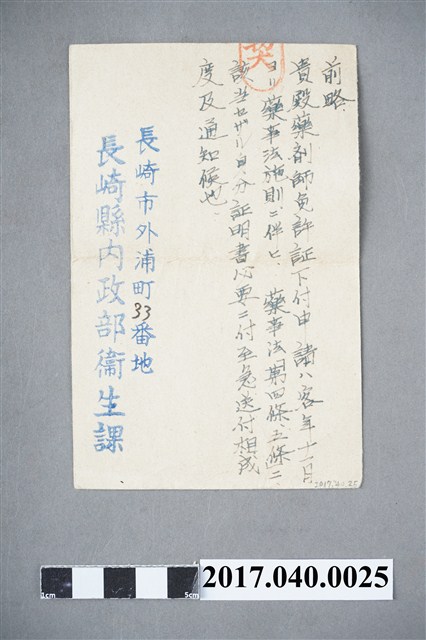 前略
貴殿藥剤師免許証下付申請ハ客年十一月
ヨリ藥事法施則ニ伴ヒ、藥事法第四條、五條ニ
該当セザル自、分証明書必要ニ付至急送付相成
度及通知候也、
長崎市外浦町33番地
長崎縣内政部衞生課
2017.40.25
1cm
5cm
2017.040.0025